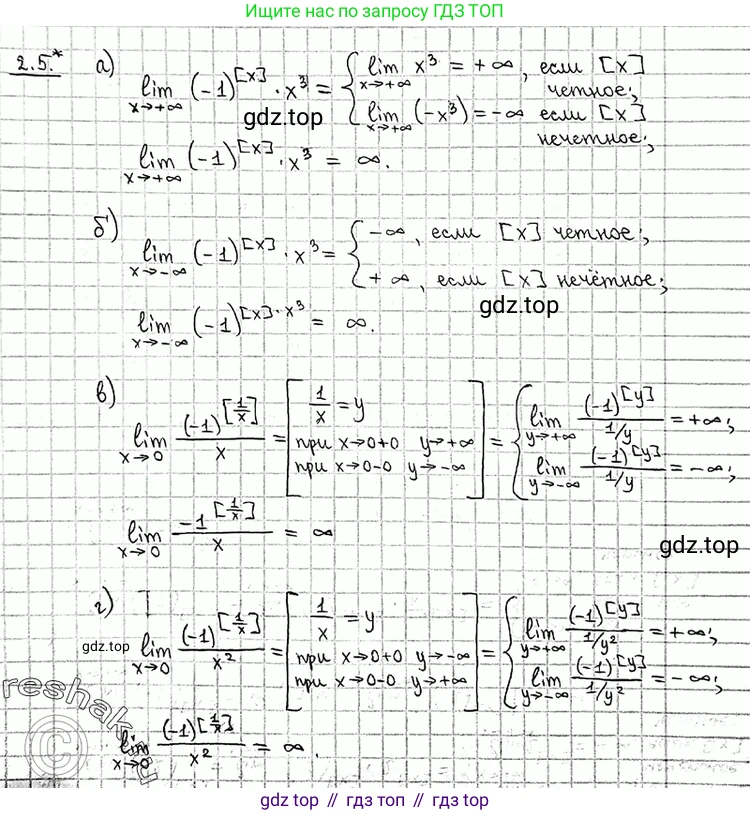 Решение найдено! Ищите нас по запросу ГДЗ ТОП
2.5.* а) lim x→+∞ (-1)^[x] · x³ = { lim x→+∞ x³ = +∞, если [x] четное;
lim x→+∞ (-x³) = -∞ если [x] нечетное;
gdz.top
lim x→+∞ (-1)^[x] · x³ = ∞.
б) lim x→-∞ (-1)^[x] · x³ = { -∞, если [x] четное;
+∞, если [x] нечётное;
gdz.top
lim x→-∞ (-1)^[x] · x³ = ∞.
в) lim x→0 (-1)^[1/x] / x = [ 1/x = y
при x→0+0 y→+∞
при x→0-0 y→-∞ ] = { lim y→+∞ (-1)^[y] / 1/y = +∞;
lim y→-∞ (-1)^[y] / 1/y = -∞;
lim x→0 -1^[1/x] / x = ∞
gdz.top
г) lim x→0 (-1)^[1/x] / x² = [ 1/x = y
при x→0+0 y→-∞
при x→0-0 y→+∞ ] = { lim y→+∞ (-1)^[y] / 1/y² = +∞;
lim y→-∞ (-1)^[y] / 1/y² = -∞;
gdz.top
lim x→0 (-1)^[1/x] / x² = ∞.
©
gdz.top // гдз топ // gdz.top